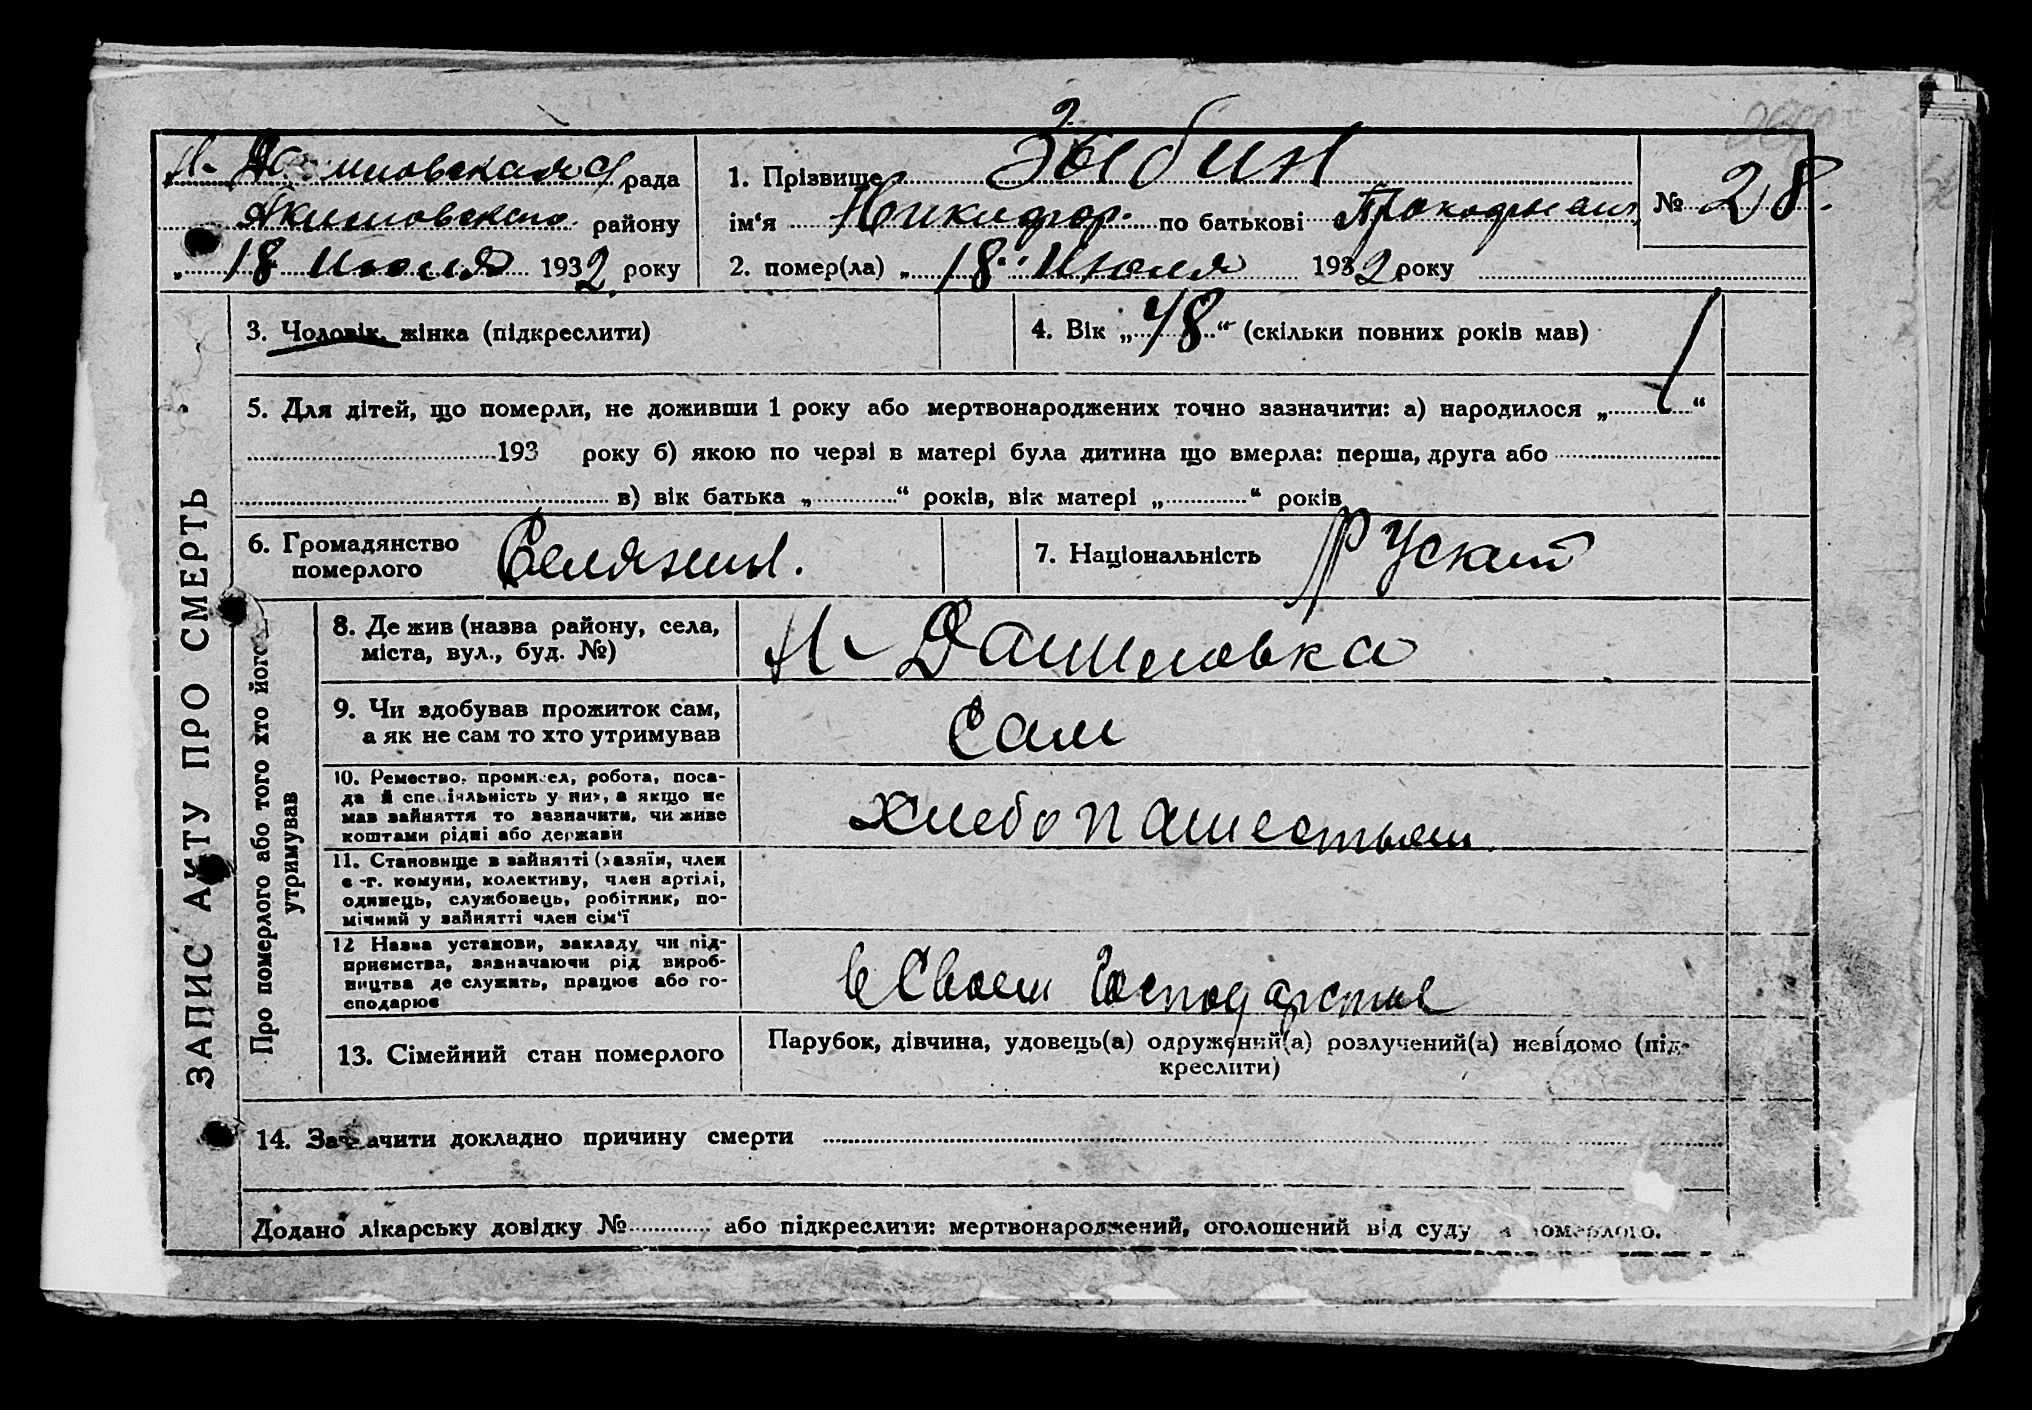 рада
1. Прізвище Зыбин
№ 28.
Акимовского району
ім‘я Никифор. по батькові
„ 18 Июля 1932 року
2. помер(ла) „ 18 “ Июля 1932 року
3. Чоловік, жінка (підкреслити)
4. Вік „ 48 “ (скільки повних років мав)
5. Для дітей, що померли, не доживши 1 року або мертвонароджених точно зазначити: а) народилося „ “
193 року б) якою по черзі в матері була дитина що вмерла: перша, друга або
в) вік батька „ “ років, вік матері „ “ років
6. Громадянство
померлого
Селянин.
7. Національність Руский
ЗАПИС АКТУ ПРО СМЕРТЬ
Про померлого або того хто його
утримував
8. Де жив (назва району, села,
міста, вул., буд. №)
Н- Даниловка
9. Чи здобував прожиток сам,
а як не сам то хто утримував
Сам
10. Ремество, промисел, робота, поса-
да й спеціяльність у них, а якщо не
мав зайняття то зазначити, чи живе
коштами рідні або держави
11. Становище в зайнятті (хазяїн, член
с -г. комуни, колективу, член артілі,
одинець, службовець, робітник, по-
мічний у зайнятті член сім‘ї
12 Назва установи, закладу чи під-
приємства, зазначаючи рід вироб-
ництва де служить, працює або го-
сподарює
в Своем
13. Сімейний стан померлого
Парубок, дівчина, удовець(а) одружений(а) розлучений(а) невідомо (під-
креслити)
14. Зазначити докладно причину смерти
Додано лікарську довідку № або підкреслити: мертвонароджений, оголошений від суду померлого.